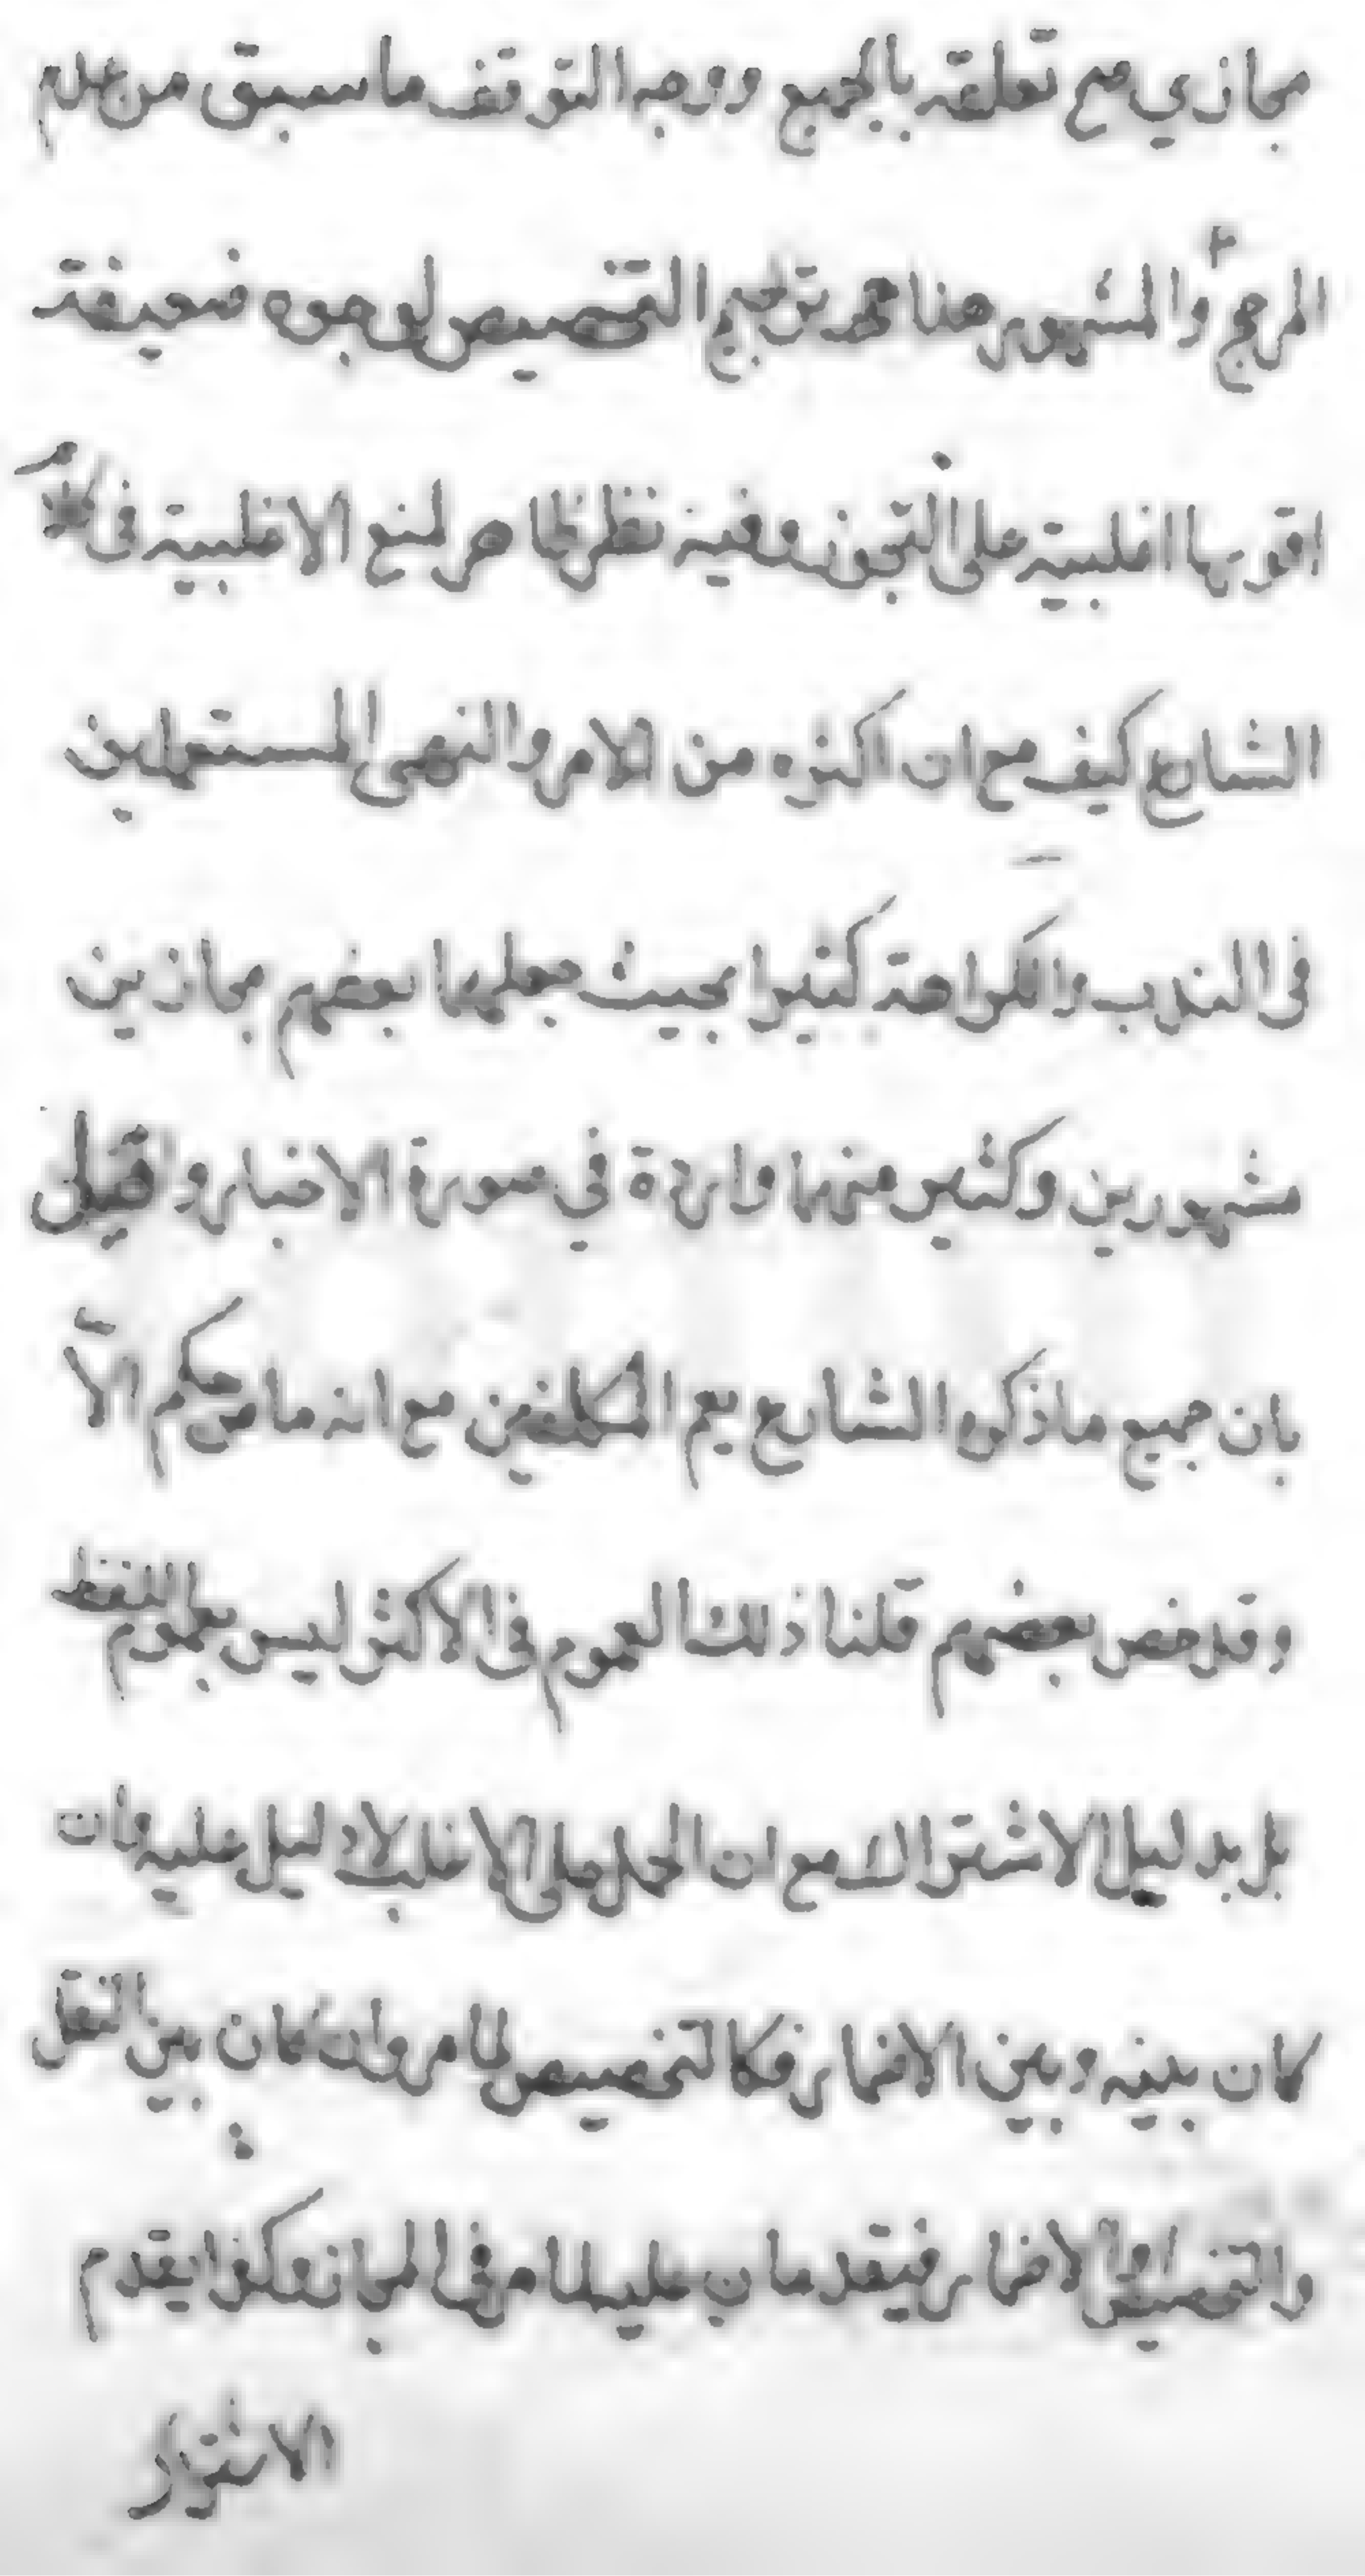 مجازي مع تعلقه بالجميع ووجه التوقف ما سبق من عدم
المرجح والمشهور هنا هو ترجيح التخصيص لوجوه ضعيفة
اقويها اغلبية على التجوز وفيه نظر ظاهر لمنع الاغلبية في كلام
الشارع كيف مع ان اكثره من الامر والنهي المستعملين
في الندب والكراهة كثيرا بحيث جعلهما بعضهم مجازين
مشهورين وكثير منهما واردة في صورة الاخبار والقيل
بان جميع ما ذكره الشارع يعم المكلفين مع انه ما من حكم الا
وقد خص ببعضهم قلنا ذلك العموم في الاكثر ليس بعموم اللفظ
بل بدليل الاشتراك مع ان الحمل على الاغلب لا دليل عليه وان
كان بينه وبين الاضمار فكالتخصيص لما مر وان كان بين النقل
والتخصيص الاضمار فيقدمان عليه لما مر في المجاز نعم كذا يقدم
الاضمار